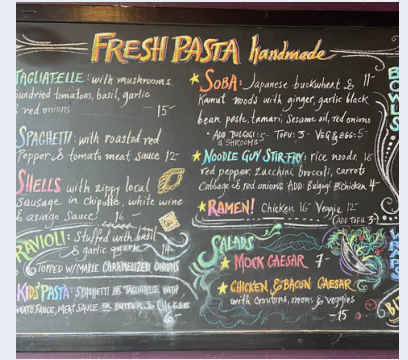 FRESH PASTA handmade
TAGLIATELLE: with mushrooms,
sundried tomatoes, basil, garlic
& red onions — 15
SPAGHETTI: with roasted red
Pepper & tomato meat sauce 12
SHELLS with zippy local
sausage in chipotle, white wine
& asiago sauce 16
RAVIOLI: Stuffed with basil
& garlic 14
TOPPED W/MAPLE CARAMELIZED ONIONS
KIDS PASTA: SPAGHETTI OR TAGLIATELLE WITH
TOMATO SAUCE, MEAT SAUCE OR BUTTER & CHEESE
6
SOBA: Japanese buckwheat & 11
Kamut noods with ginger, garlic black
bean paste, tamari, Sesame oil, red onions
TOFU: 3 - VEG & EGG: 5
& SHROOMS
NOODLE GUY STIR-FRY: rice noods 16
red pepper, Zucchini, broccoli, carrots
Cabbage & red onions ADD: Bulgogi & Chicken 4
RAMEN! Chicken 16 - Veggie 12
(ADD TOFU 3)
SALADS
MOCK CAESAR 7
CHICKEN & BACON CAESAR
with croutons, onions & veggies
15